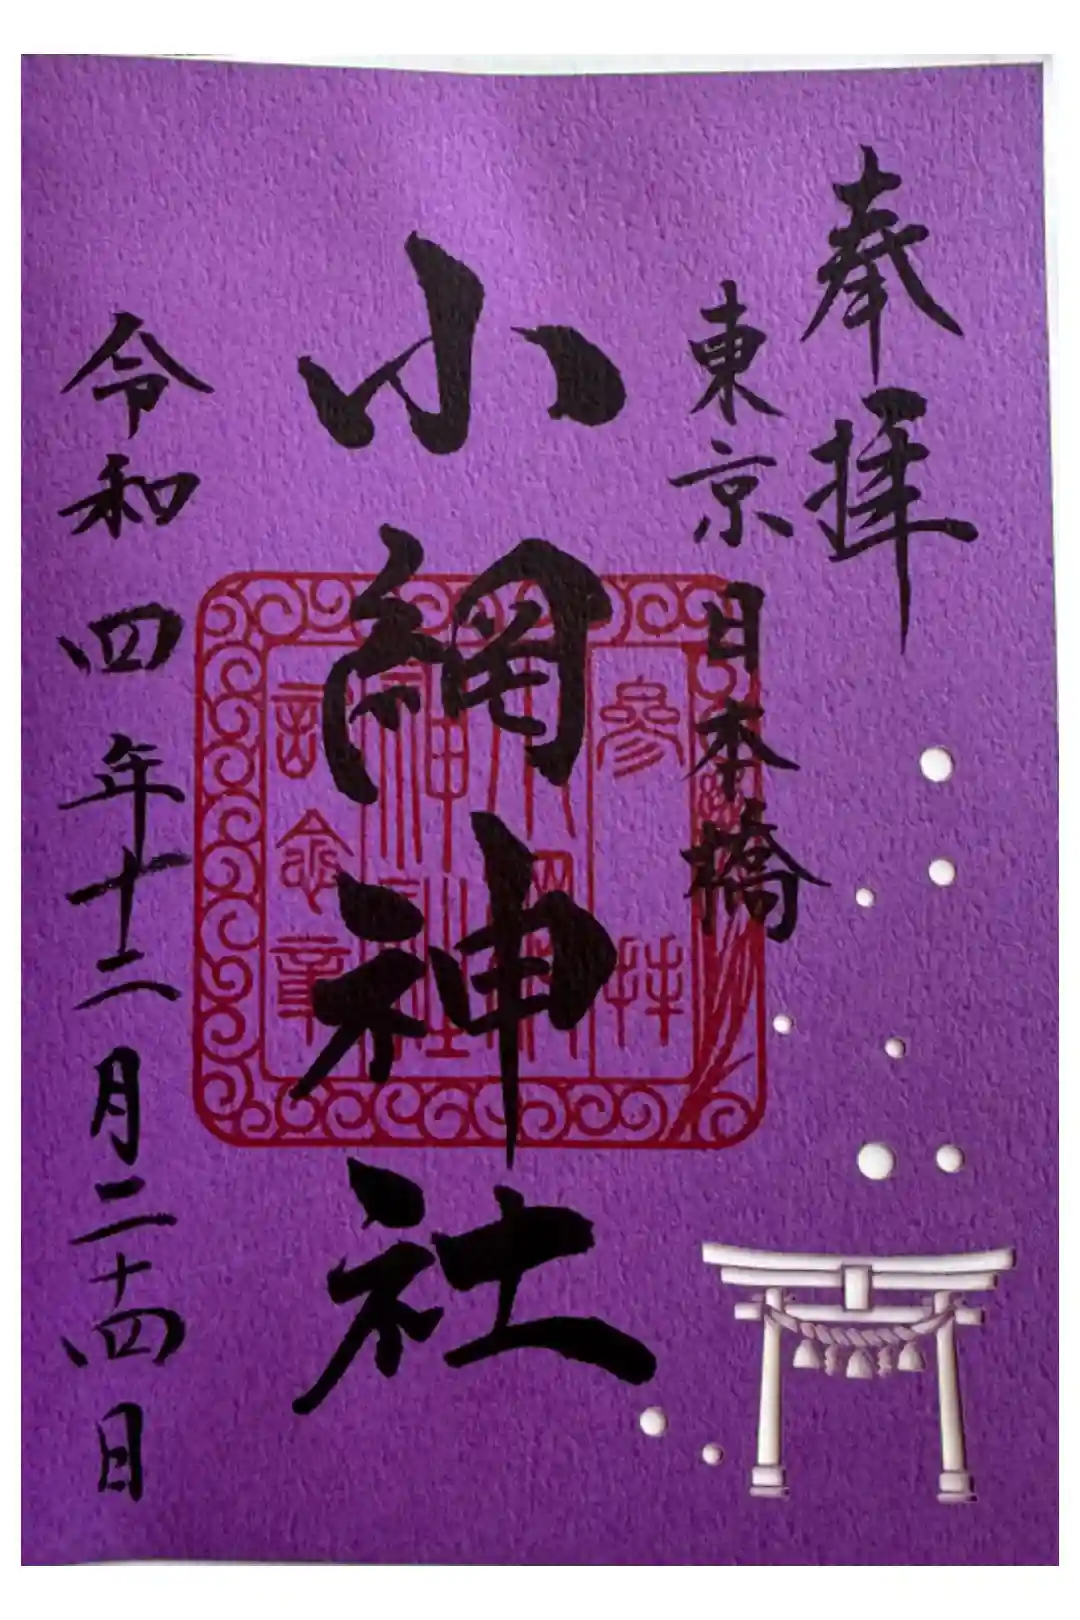 奉拝
東京日本橋
小網神社
参拝
小網神社
記念章
令和四年十二月二十四日